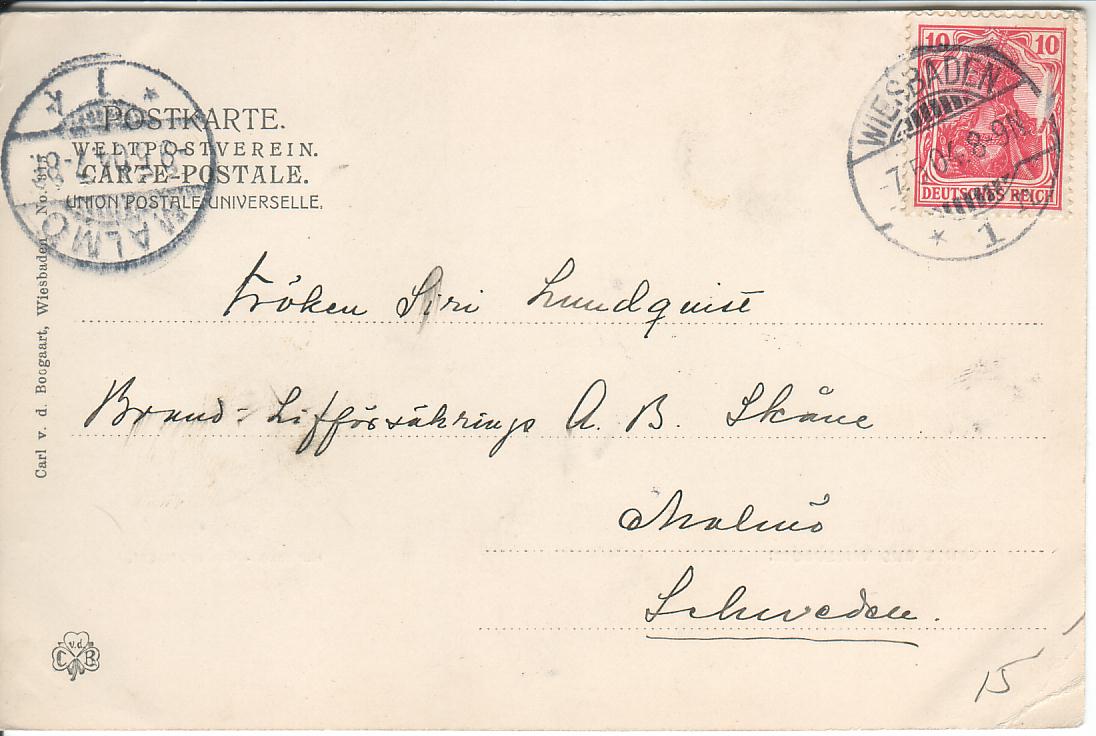 POSTKARTE.
WELTPOSTVEREIN.
CARTE-POSTALE.
UNION POSTALE UNIVERSELLE.
MALMÖ
1
10 10
DEUTSCHES REICH
WIESBADEN
7.5.04. 8-9N.
* 1
Fröken Siri Lundquist
Brand- Lifförsäkrings A. B. Skåne
Malmö
Schweden.
Carl v. d. Boogaart, Wiesbaden. No.
v.d.
C B
15